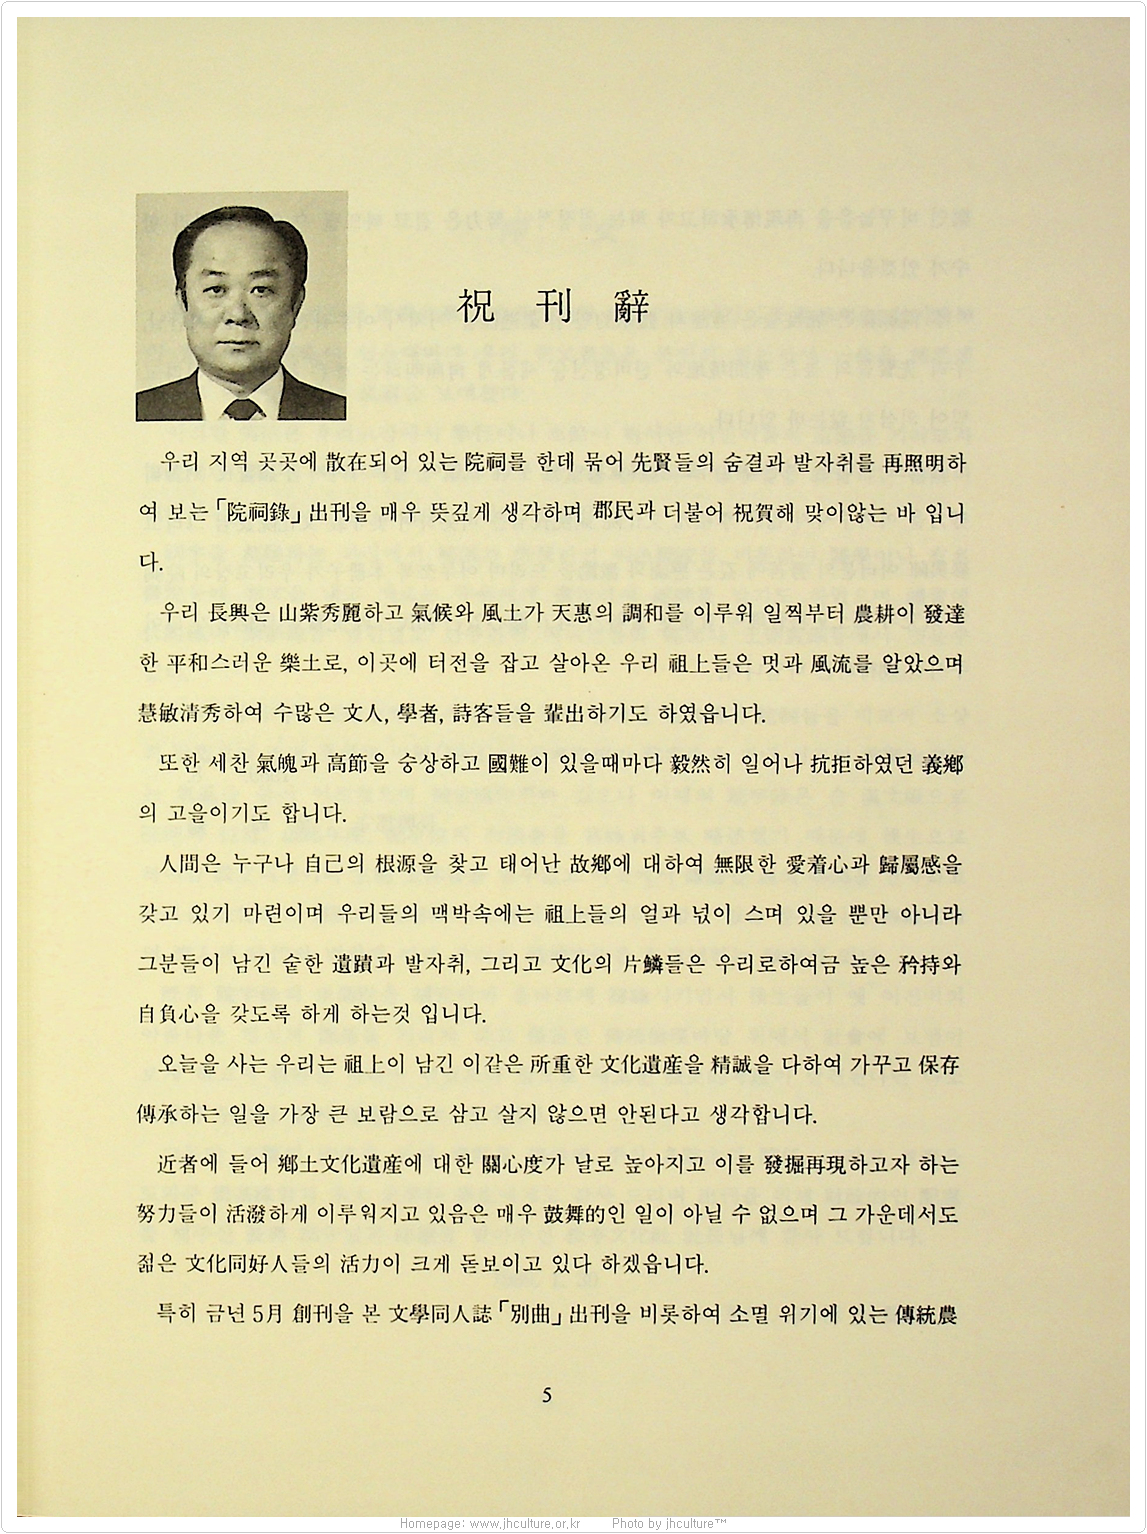 祝 刊 辭
우리 지역 곳곳에 散在되어 있는 院祠를 한데 묶어 先賢들의 숨결과 발자취를 再照明하
여 보는「院祠錄」出刊을 매우 뜻깊게 생각하며 郡民과 더불어 祝賀해 맞이않는 바 입니
다.
우리 長興은 山紫秀麗하고 氣候와 風土가 天惠의 調和를 이루워 일찍부터 農耕이 發達
한 平和스러운 樂土로, 이곳에 터전을 잡고 살아온 우리 祖上들은 멋과 風流를 알았으며
慧敏淸秀하여 수많은 文人, 學者, 詩客들을 輩出하기도 하였읍니다.
또한 세찬 氣魄과 高節을 숭상하고 國難이 있을때마다 毅然히 일어나 抗拒하였던 義鄕
의 고을이기도 합니다.
人間은 누구나 自己의 根源을 찾고 태어난 故鄕에 대하여 無限한 愛着心과 歸屬感을
갖고 있기 마련이며 우리들의 맥박속에는 祖上들의 얼과 넋이 스며 있을 뿐만 아니라
그분들이 남긴 숱한 遺蹟과 발자취, 그리고 文化의 片鱗들은 우리로하여금 높은 矜持와
自負心을 갖도록 하게 하는것 입니다.
오늘을 사는 우리는 祖上이 남긴 이같은 所重한 文化遺産을 精誠을 다하여 가꾸고 保存
傳承하는 일을 가장 큰 보람으로 삼고 살지 않으면 안된다고 생각합니다.
近者에 들어 鄕土文化遺産에 대한 關心度가 날로 높아지고 이를 發掘再現하고자 하는
努力들이 活潑하게 이루워지고 있음은 매우 鼓舞的인 일이 아닐 수 없으며 그 가운데서도
젊은 文化同好人들의 活力이 크게 돋보이고 있다 하겠읍니다.
특히 금년 5月 創刊을 본 文學同人誌「別曲」出刊을 비롯하여 소멸 위기에 있는 傳統農
5
Homepage: www.jhculture.or.kr Photo by jhculture™